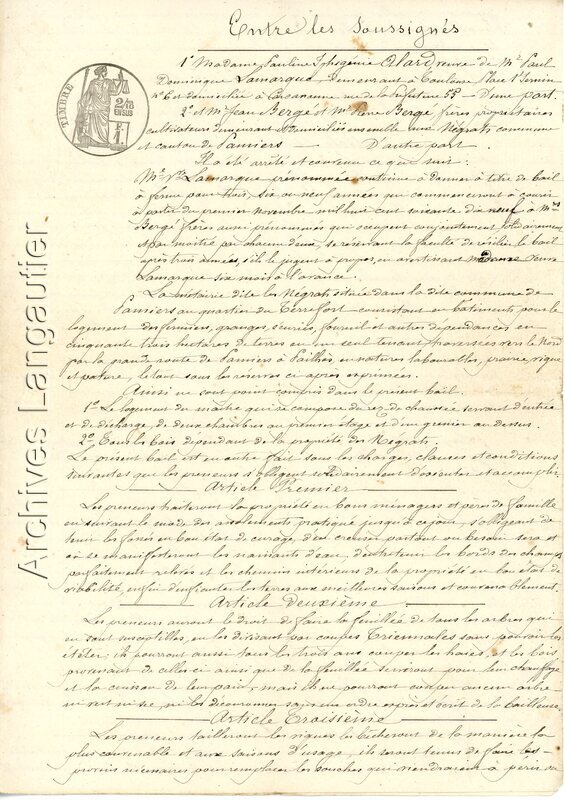 Entre les Soussignés
1° Madame Pauline Iphigénie Alard veuve de Mr Paul
Dominique Lamarque demeurant à Toulouse Place St Sernin
N° 6 et domiciliée à Carcassonne rue de la Préfecture 55 D'une part.
2° et Mr Jean Bergé et Mr Pierre Bergé frères propriétaires
cultivateurs demeurant et domiciliés ensemble aux Négrats commune
et canton de Pamiers D'autre part
Il a été arrêté et convenu ce qui suit:
Me Vve Lamarque prénommée continue à donner à titre de bail
à ferme pour trois, six ou neuf années qui commenceront à courir
à partir du premier Novembre mil huit cent soixante dix neuf à Mrs
Bergé frères aussi prénommés qui acceptent conjointement solidairement
et par moitié par chacun d'eux, se réservant la faculté de résilier le bail
après trois années, s'ils le jugent à propos, en avertissant madame veuve
Lamarque six mois à l'avance.
La métairie dite les Négrats située dans la dite commune de
Pamiers au quartier du Terrefort consistant en bâtiments pour le
logement des fermiers, granges, écuries, fournil et autres dépendances en
cinquante trois hectares de terres en un seul tenant traversées vers le Nord
par la grande route de Pamiers à Pailhès en natures labourables, prairie, vigne
et pature, le tout sous les réserves ci après exprimées.
Ainsi ne sont point compris dans le présent bail.
1° Le logement du maître qui se compose du rez de chaussée servant d'entrée
et de décharge, de deux chambres au premier étage et d'un grenier au dessus.
2° Tous les bois dépendant de la propriété des Négrats.
Le présent bail est en outre fait sous les charges, clauses et conditions
suivantes que les preneurs s'obligent solidairement d'exécuter et accomplir
Article Premier
Les preneurs traiteront la propriété en bons ménagers et pères de famille
en suivant le mode des assolements pratiqué jusqu'à ce jour, s'obligeant de
tenir les fossés en bon état de curage, d'en creuser partout où besoin sera et
où se manifesteront les naissants d'eau, d'entretenir les bords des champs
parfaitement relevés et les chemins intérieurs de la propriété en bon état de
viabilité, enfin d'ensemencer les terres aux meilleures saisons et convenablement.
Article Deuxième
Les preneurs auront le droit de faire la feuillée de tous les arbres qui
en sont susceptibles, en les divisant par coupes Triennales sans pouvoir les
étêter; ils pourront aussi tous les trois ans couper les haies, et les bois
provenant de celles ci ainsi que de la feuillée serviront pour leur chauffage
et la cuisson de leur pain; mais ils ne pourront couper aucun arbre
ni vert ni sec, ni les découronner sans un ordre exprès et écrit de la bailleresse.
Article Troisième
Les preneurs tailleront les vignes les bêcheront de la manière la
plus convenable et aux saisons d'usage, ils seront tenus de faire les
provins nécessaires pour remplacer les souches qui viendraient à périr ou
TIMBRE
2/10
EN SUS
F.
1.
Archives Langautier